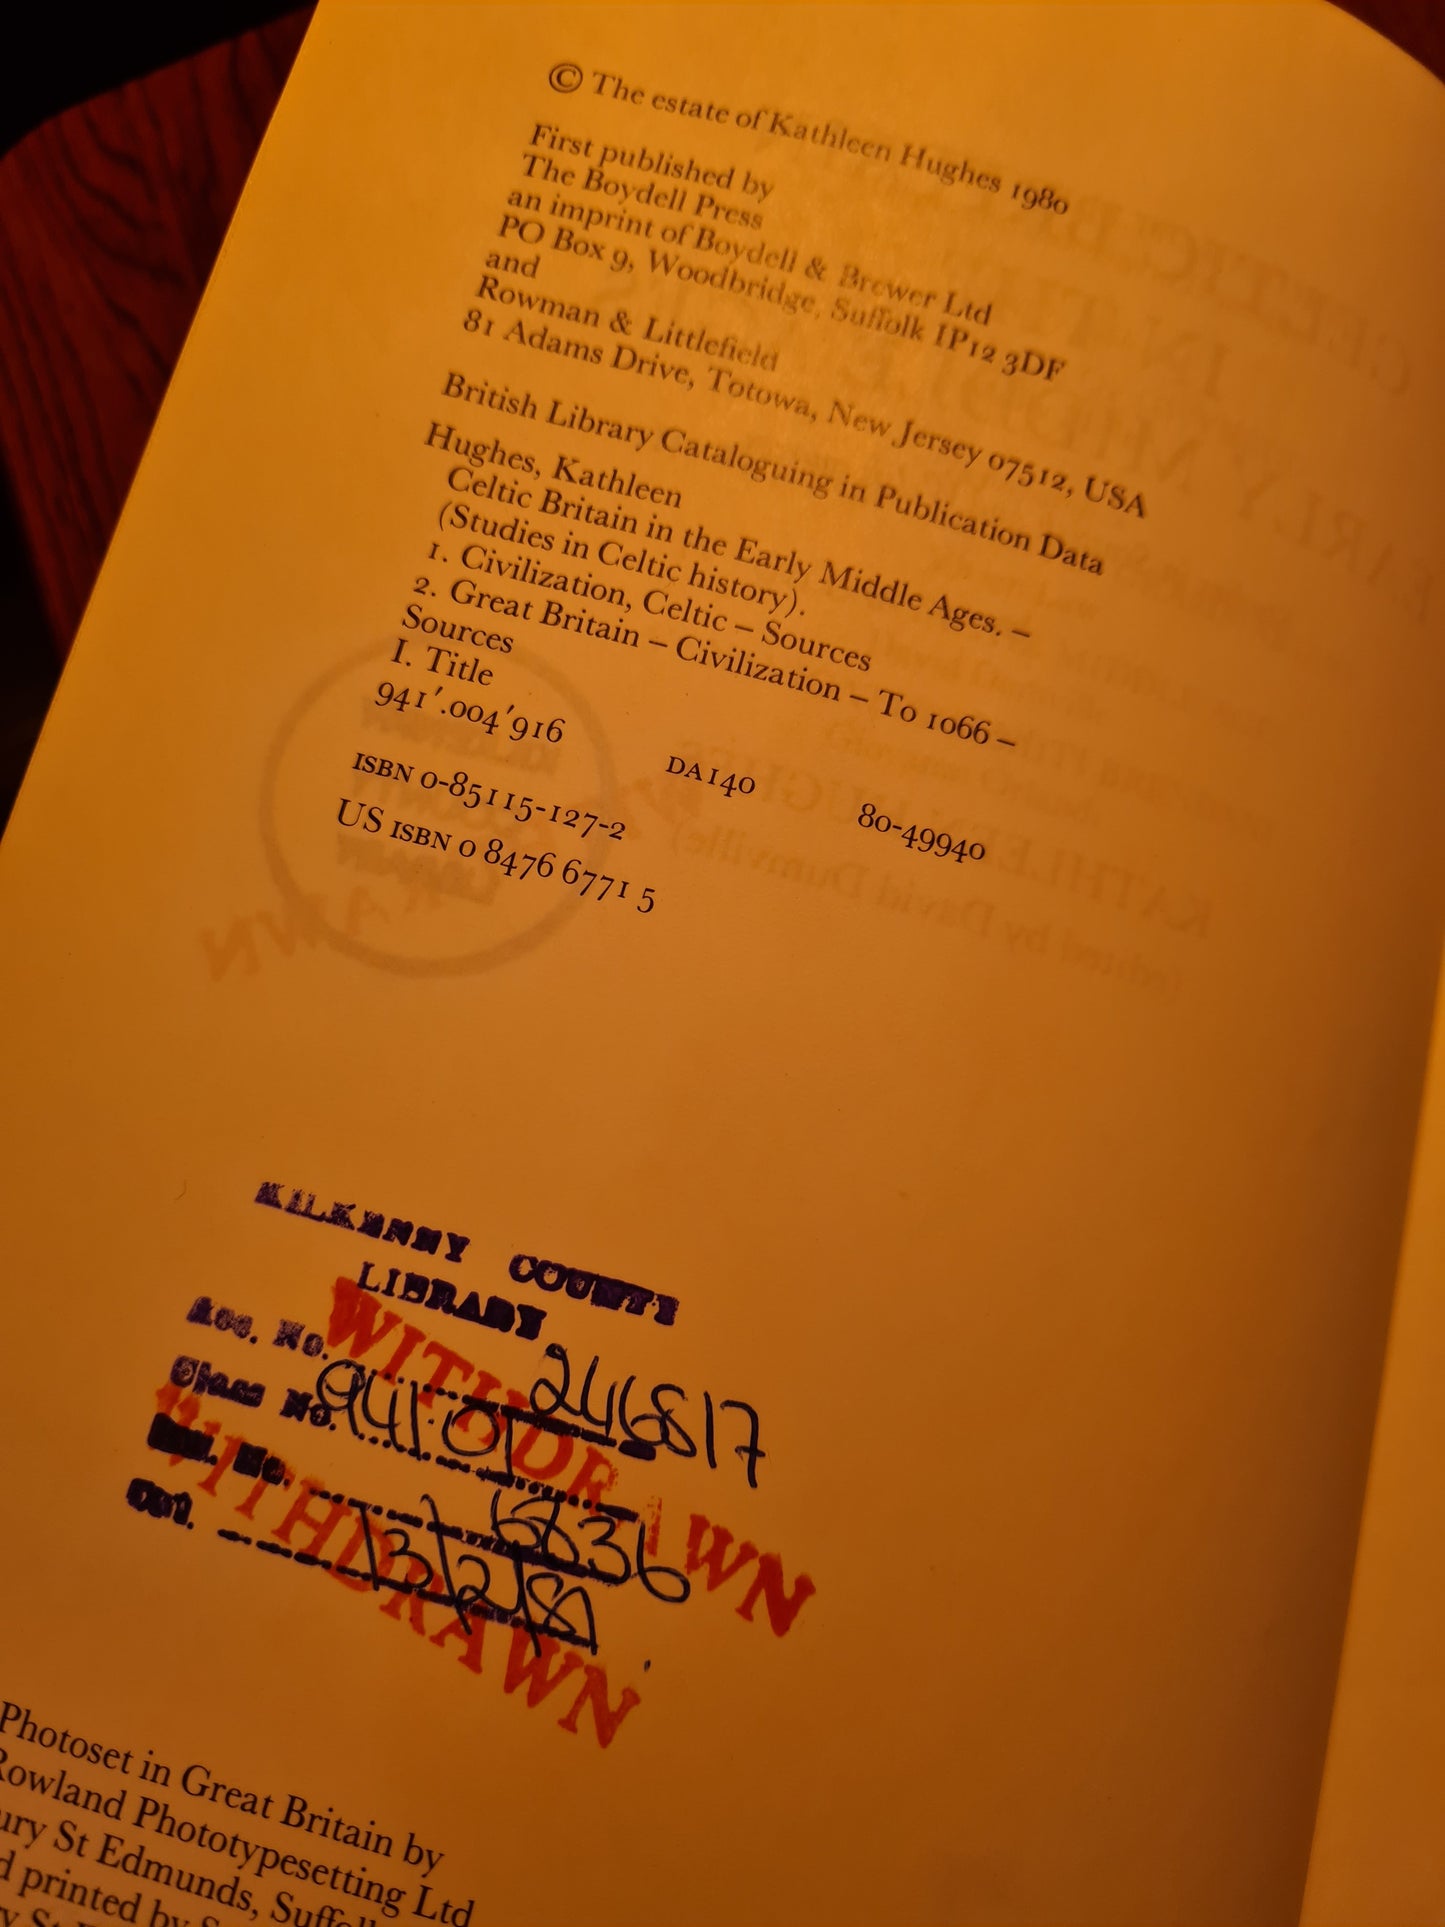 © The estate of Kathleen Hughes 1980
First published by
The Boydell Press
an imprint of Boydell & Brewer Ltd
PO Box 9, Woodbridge, Suffolk IP12 3DF
and
Rowman & Littlefield
81 Adams Drive, Totowa, New Jersey 07512, USA
British Library Cataloguing in Publication Data
Hughes, Kathleen
Celtic Britain in the Early Middle Ages. –
(Studies in Celtic history).
1. Civilization, Celtic – Sources
2. Great Britain – Civilization – To 1066 –
Sources
I. Title
941′.004′916 DA140 80-49940
ISBN 0-85115-127-2
US ISBN 0 8476 6771 5
KILKENNY COUNTY
LIBRARY
WITHDRAWN
Acc. No. 246817
Class No. 941.01
Inv. No. 6636
Cat. 13/2/81
WITHDRAWN
Photoset in Great Britain by
Rowland Phototypesetting Ltd
ury St Edmunds, Suffolk
d printed by S